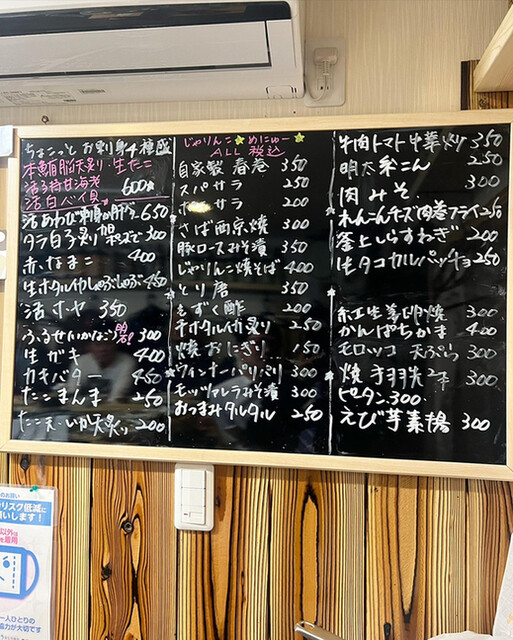 ちょこっと お刺身4種盛
本鮪脳天炙り・生だこ
活子持甘海老
活白バイ貝 600
活あわび刺身 肝ダレ 650
タラ白子炙り ポン酢で 300
赤なまこ 400
生ホタルイカしゃぶしゃぶ 450
活ホヤ 350
ふるせいかなご 300
生ガキ 400
カキバター 450
たこまんま 250
たこ天・いか天 炙り 200
じゃりんこ★めにゅー★
ALL 税込
自家製 春巻 350
スパサラ 250
サラ 200
さば西京焼 300
豚ロースみそ漬 350
じゃりんこ焼そば 400
とり唐 350
もずく酢 200
干ホタルイカ炙り 250
焼おにぎり 150
ウィンナーパリパリ 300
モッツァレラみそ漬 300
おつまみタルタル 250
牛肉トマト中華炒り 350
明太糸こん 250
肉みそ 300
れんこんチーズ肉巻フライ 250
釜上しらすねぎ 200
生タコカルパッチョ 250
紅生姜卵焼 300
がんばちかま 400
モロッコ 天ぷら 300
焼手羽先2本 300
ピータン 300
えび芋素揚 300
リスク低減に
いします!
一人ひとりの
協力が大切です